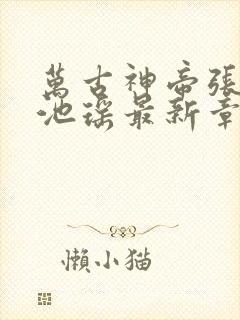 萬古神帝張
池瑤最新章
懶小猫